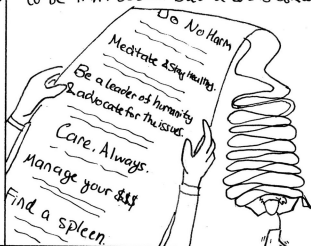 Do No Harm
Meditate & Stay Healthy.
Be a leader of humanity
& advocate for the issues.
Care. Always.
Manage your $$$
Find a spleen.